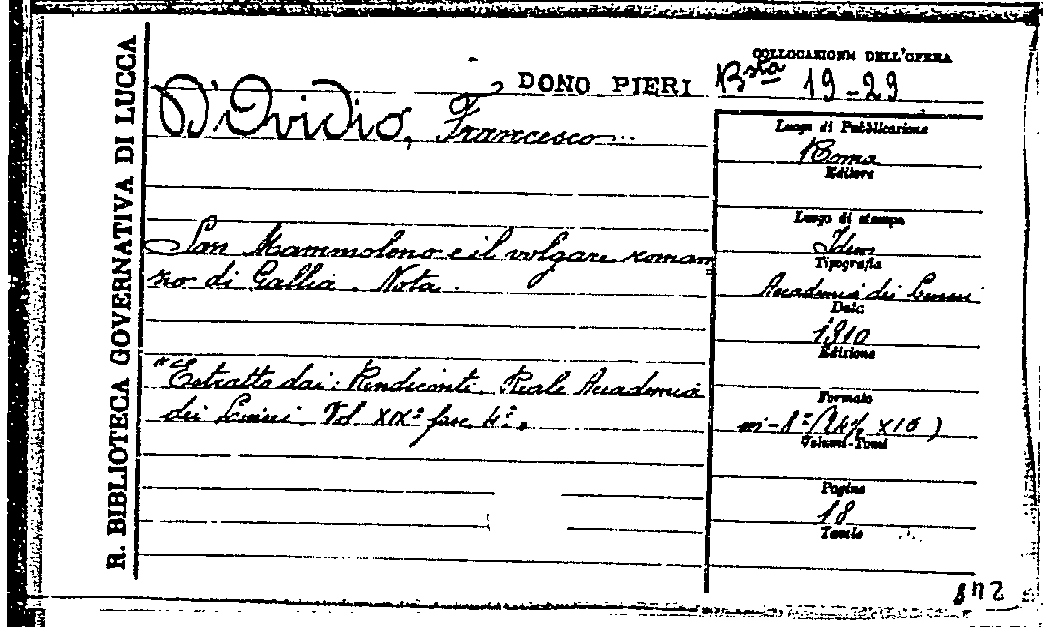 R. BIBLIOTECA GOVERNATIVA DI LUCCA
DONO PIERI
COLLOCAZIONE DELL'OPERA
Bsta 19-29
D'Ovidio, Francesco
San Mommoleno e il volgare roman
zo di Gallia. Nota.
"Estratto dai: Rendiconti. Reale Accademia
dei Lincei. Vol XIX° fasc. 4°.
Luogo di Pubblicazione
Roma
Editore
Luogo di stampa
Idem
Tipografia
Accademia dei Lincei
Data
1910
Edizione
Formato
in-8° (24½ x 16)
Volumi-Tomi
Pagine
18
Tavole